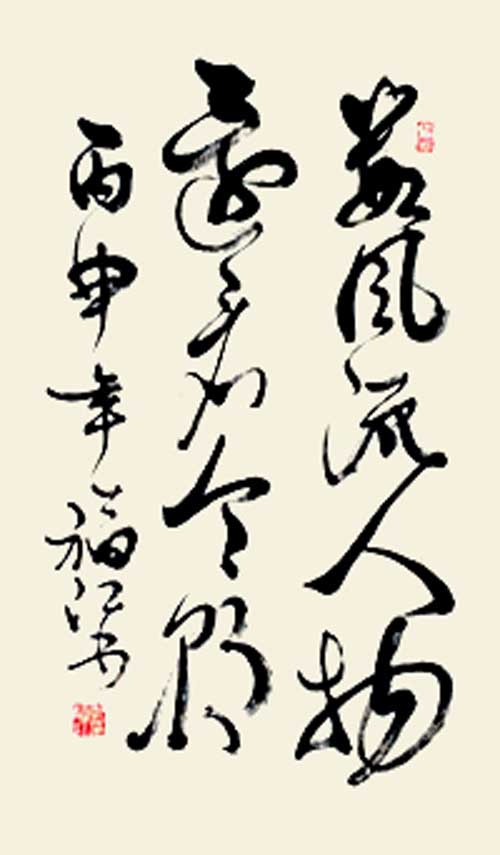 数风流人物
还看今朝
丙申年福江书